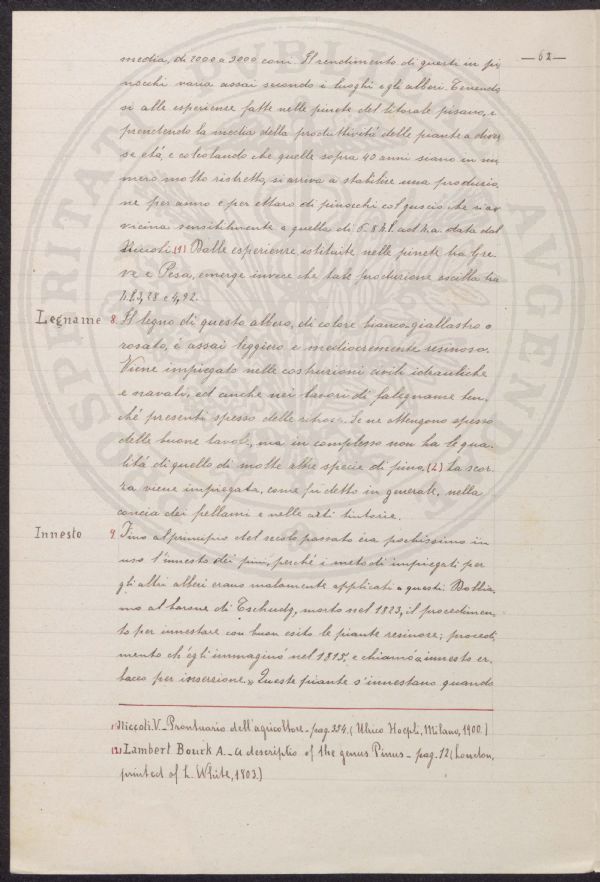 —62—
media, di 2000 a 3000 coni. Il rendimento di questi in pi
nocchi varia assai secondo i luoghi e gli alberi. Tenendo
si alle esperienze fatte nelle pinete del litorale pisano, e
prendendo la media della produttività delle piante a diver
se età, e calcolando che quelle sopra 40 anni siano in nu
mero molto ristretto, si arriva a stabilire una produzio
ne per anno e per ettaro di pinocchi col guscio che si av
vicina sensibilmente a quella di 6.8 h.l. ad h.a. data dal
Niccoli.(1) Dalle esperienze istituite nelle pinete tra Gre
ve e Pesa, emerge invece che tale produzione oscilla tra
h.l. 3,28 e 4,92.
Legname 8. Il legno di questo albero, di colore bianco-giallastro o
rosato, è assai leggiero e mediocremente resinoso.
Viene impiegato nelle costruzioni civili idrauliche
e navali, ed anche nei lavori di falegname ben
chè presenti spesso delle Se ne ottengono spesso
delle buone tavole, ma in complesso non ha le qua
lità di quello di molte altre specie di pino.(2) La scor
za viene impiegata, come fu detto in generale, nella
concia dei pellami e nelle arti tintorie.
Innesto 9. Fino al principio del secolo passato era pochissimo in
uso l'innesto dei pini, perchè i metodi impiegati per
gli altri alberi erano malamente applicati a questi. Dobbia
mo al barone di Tschudy, morto nel 1823, il procedimen
to per innestare con buon esito le piante resinose; procedi
mento ch'egli immaginò nel 1815, e chiamò «innesto er
baceo per inserzione.» Queste piante s'innestano quando
(1) Niccoli. V_ Prontuario dell'agricoltore_pag. 254. (Ulrico Hoepli, Milano, 1900.)
(2) Lambert Bourk A._ A descriptio of the genus Pinus_ pag. 12 (London,
printed of L. White, 1803.)
PROSPERITATI PUBLICAE AUGENDAE